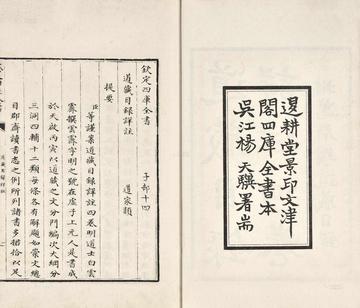 退耕堂景印文津
閣四庫全書本
吳江楊天驥署耑
欽定四庫全書　子部十四
道藏目錄詳註　道家類
提要
臣等謹案道藏目錄詳註四卷明道士白雲
霽撰雲霽字明之號在虛子上元人是書成
於天啟丙寅以道藏之文分門編次大綱分
三洞四輔十二類每條各有解題如崇文總
目郡齋讀書志之例所列諸書多捃拾以足